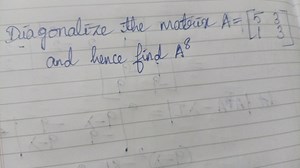 Diagonalize the matrix A = [5 3
1 3]
and hence find A⁸